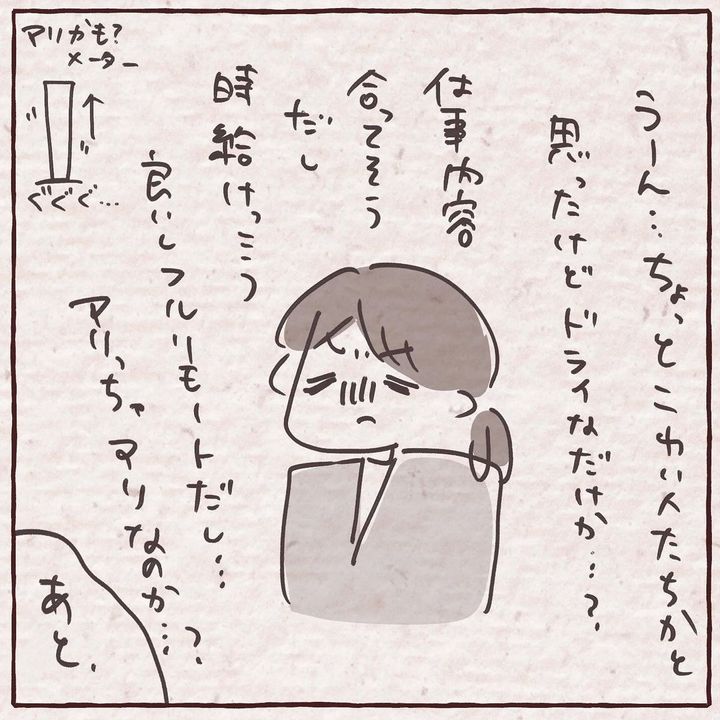 うーん…ちょっとこわい人たちかと
思ったけどドライなだけか…？
仕事内容
合ってそう
だし
時給けっこう
良いしフルリモートだし…
アリっちゃアリなのか…？
アリかも?
メーター
ぐぐぐ…
あと、